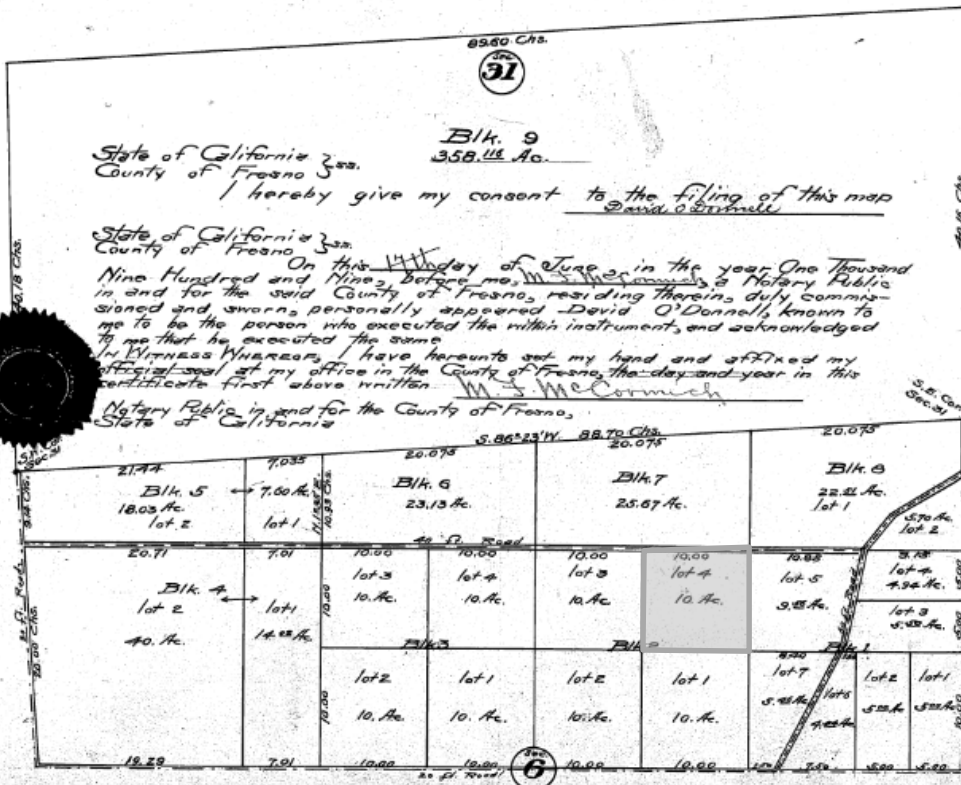 89.60 Chs.
Sec
31
Blk. 9
358.116 Ac.
State of California
County of Fresno } ss.
I hereby give my consent to the filing of this map
David O'Donnell
State of California
County of Fresno } ss.
On this 17th day of June, in the year One Thousand
Nine Hundred and Nine, before me, M. F. McCormick, a Notary Public
in and for the said County of Fresno, residing therein, duly commis-
sioned and sworn, personally appeared David O'Donnell, known to
me to be the person who executed the within instrument, and acknowledged
to me that he executed the same
IN WITNESS WHEREOF, I have hereunto set my hand and affixed my
official seal at my office in the County of Fresno, the day and year in this
certificate first above written
M. F. McCormick
Notary Public in and for the County of Fresno,
State of California
S.E. Cor.
Sec. 31
S. 86°23'W. 88.70 Chs.
21.44 7.035 20.075 20.075 20.075
Blk. 5 7.60 Ac. Blk. 6 Blk. 7 Blk. 8
18.03 Ac. 23.13 Ac. 25.67 Ac. Ac.
lot 2 lot 1 lot 1
10.93 Chs.
5.70 Ac.
lot 2
40 ft. Road
20.71 7.01 10.00 10.00 10.00 10.00
Blk. 4 lot 3 lot 4 lot 3 lot 4 lot 5 lot 4
lot 2 lot 1 10. Ac. 10. Ac. 10. Ac. 10. Ac. 4.94 Ac.
40. Ac. 10.00 lot 3
20.00 Chs.
Blk 3 Blk 2 Blk 1
lot 2 lot 1 lot 2 lot 1 lot 7 lot 6 lot 2 lot 1
10. Ac. 10. Ac. 10. Ac. 10. Ac.
10.00
19.29 7.01 10.00 10.00 10.00 10.00 7.50 5.00 5.00
20 ft. Road
Sec
6